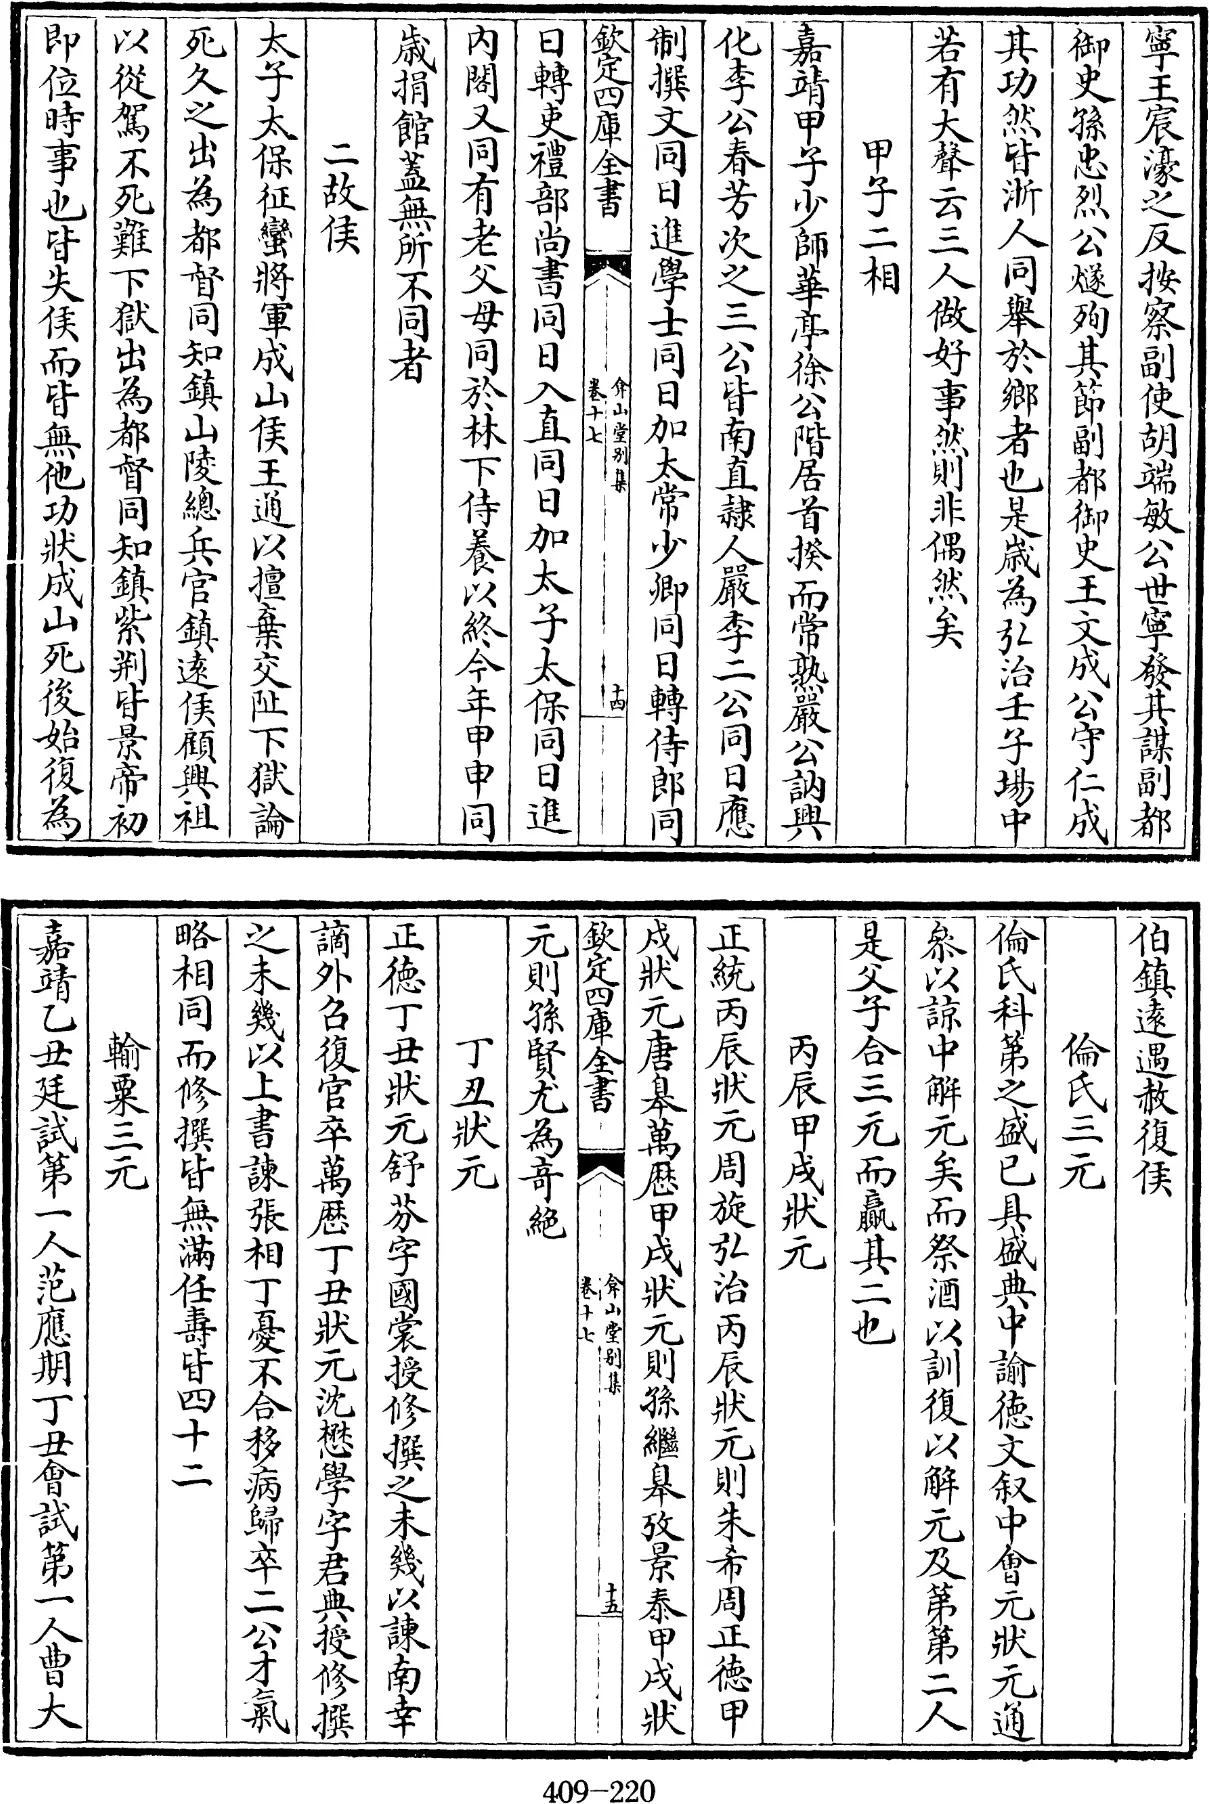 寧王宸濠之反按察副使胡端敏公世寧發其謀副都
御史孫忠烈公燧殉其節副都御史王文成公守仁成
其功然皆浙人同舉於鄉者也是歲為弘治壬子場中
若有大聲云三人做好事然則非偶然矣
甲子二相
嘉靖甲子少師華亭徐公階居首揆而常熟嚴公訥興
化李公春芳次之三公皆南直隸人嚴李二公同日應
制撰文同日進學士同日加太常少卿同日轉侍郎同
欽定四庫全書
弇山堂別集
卷十七
十四
日轉吏禮部尚書同日入直同日加太子太保同日進
內閣又同有老父母同於林下侍養以終今年甲申同
歲捐館蓋無所不同者
二故侯
太子太保征蠻將軍成山侯王通以擅棄交阯下獄論
死久之出為都督同知鎮山陵總兵官鎮遠侯顧興祖
以從駕不死難下獄出為都督同知鎮紫荆皆景帝初
即位時事也皆失侯而皆無他功狀成山死後始復為
伯鎮遠遇赦復侯
倫氏三元
倫氏科第之盛已具盛典中諭德文叙中會元狀元通
叅以諒中解元矣而祭酒以訓復以解元及第第二人
是父子合三元而贏其二也
丙辰甲戌狀元
正統丙辰狀元周旋弘治丙辰狀元則朱希周正德甲
戌狀元唐皋萬歷甲戌狀元則孫繼皋攷景泰甲戌狀
欽定四庫全書
弇山堂別集
卷十七
十五
元則孫賢尤為奇絕
丁丑狀元
正德丁丑狀元舒芬字國裳授修撰之未幾以諫南幸
謫外召復官卒萬歷丁丑狀元沈懋學字君典授修撰
之未幾以上書諫張相丁憂不合移病歸卒二公才氣
略相同而修撰皆無滿任壽皆四十二
輸粟三元
嘉靖乙丑廷試第一人范應期丁丑會試第一人曹大
409-220